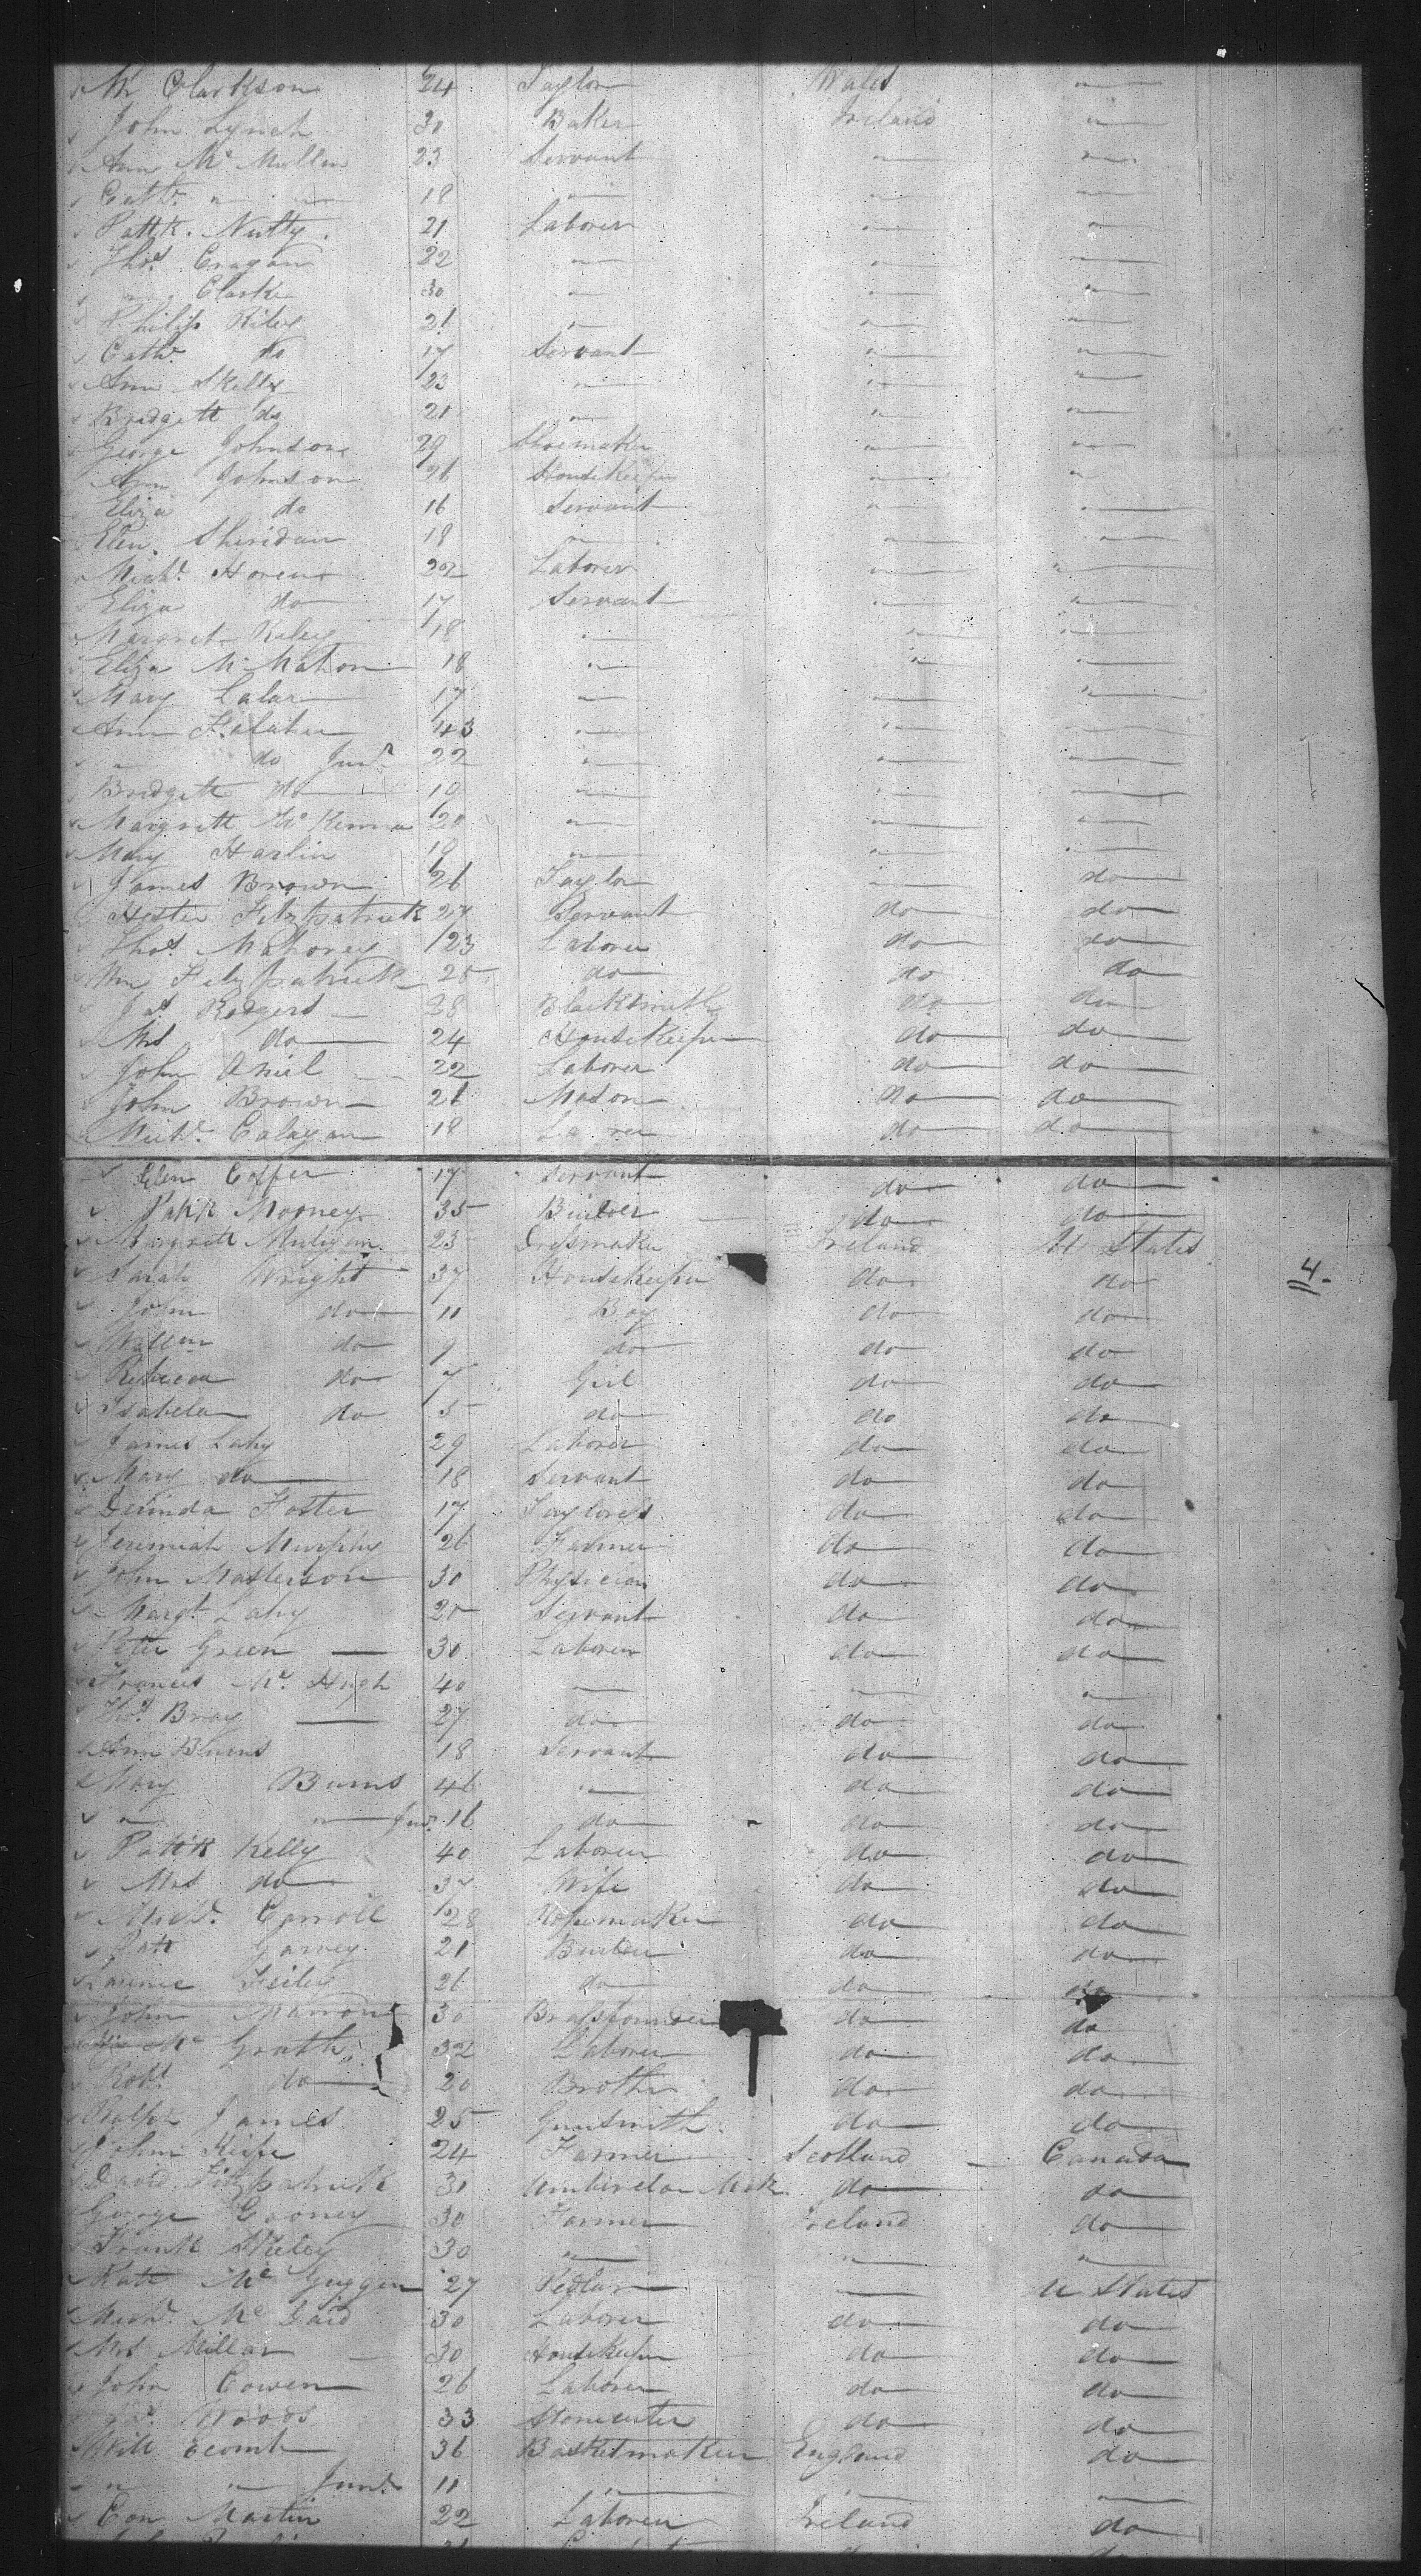 Wm Clarkson 24 Taylor Wales "
John Lynch 30 Baker Ireland "
Ann Mc Mullen 23 Servant " "
Cathe. " " 18 " " "
Pattk. Nutty 21 Laborer " "
Thos. Cragan 22 " " "
" Clarke 30 " " "
Philip Riley 21 " " "
Cathe. do 17 Servant " "
Ann Skelly 23 " " "
Bridgett do 21 " " "
George Johnson 29 Shoemaker " "
Ann Johnson 26 HouseKeeper " "
Eliza do 16 Servant " "
Elen. Sheridan 18 " " "
Michl. Horen 22 Laborer " "
Eliza do 17 Servant " "
Margret Kiley 18 " " "
Eliza Mc Mahon 18 " " "
Mary Lalar 17 " " "
Ann 43 " " "
" do Junr. 22 " " "
Bridgett do 19 " " "
Margrett Mc Kenna 20 " " "
Mary Harlin 18 " " "
James Brown 26 Taylor " do
Hester Fitzpatrick 27 Servant do do
Thos. Mahoney 23 Laborer do do
Wm Fitzpatrick 25 do do do
Jas Rodgers 28 Blacksmith do do
Mrs do 24 HouseKeeper do do
John Oniel 22 Laborer do do
John Brown 21 Mason do do
Michl. Calagan 18 La rer do do
Elen Coffer 17 Servant do do
Patk Mooney 35 Builder do do
Margrett Muligan 23 Dressmaker Ireland U States
Sarah Wright 37 HouseKeeper do do 4
John do 11 Boy do do
Willm do 9 do do do
Rebecca do 7 Girl do do
Isabela do 5 do do do
James Lahy 29 Laborer do do
Mary do 18 Servant do do
Derinda Foster 17 Tayloress do do
Jeremiah Murphy 26 Farmer do do
John Masterson 30 Physician do do
Margt. Lahy 20 Servant do do
Peter Green 30 Laborer do do
Francis Mc. Hugh 40 " " "
Thos. Bray 27 do do do
Ann Burns 18 Servant do do
Mary Burns 46 " do do
" " Junr. 16 do do do
Pattk Kelly 40 Laborer do do
Mrs do 37 Wife do do
Michl. Carroll 28 Ropemaker do do
Patt Garvey 21 Butler do do
26 do do do
John Marrone 30 Brassfounder do do
Mc Grath 32 Laborer do do
Robt. do 20 Brother do do
Ralph James 25 Gunsmith do do
John Keife 24 Farmer Scotland Canada
David Fitzpatrick 31 Umberela Mak. do do
George Cooney 30 Farmer Ireland do
Frank Kieley 30 " " "
Matt Mc Guggen 27 Pedlar " U States
Michl. Mc Daid 30 Laborer do do
Mrs Millar 30 HouseKeeper do do
John Cowen 26 Laborer do do
Woods 33 Stonecutter do do
Will Ecomb 36 Basketmaker England do
" " Junr. 11 " " "
Con Martin 22 Laborer Ireland do